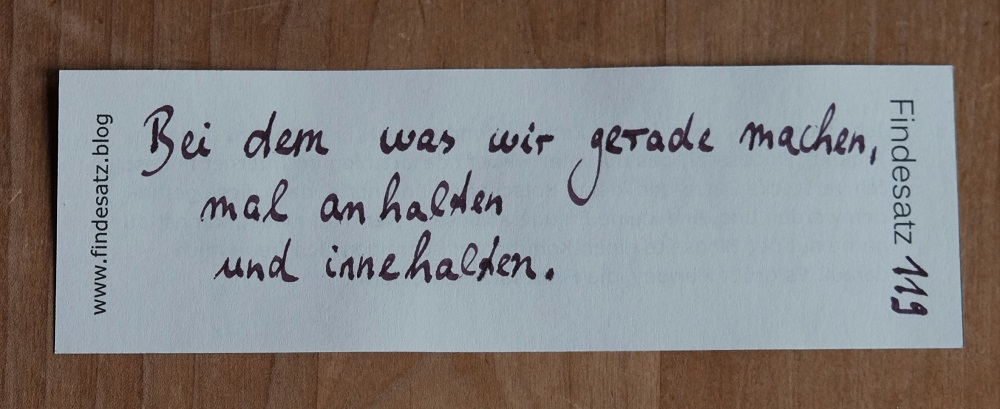 www.findesatz.blog
Bei dem was wir gerade machen,
mal anhalten
und innehalten.
Findesatz 119